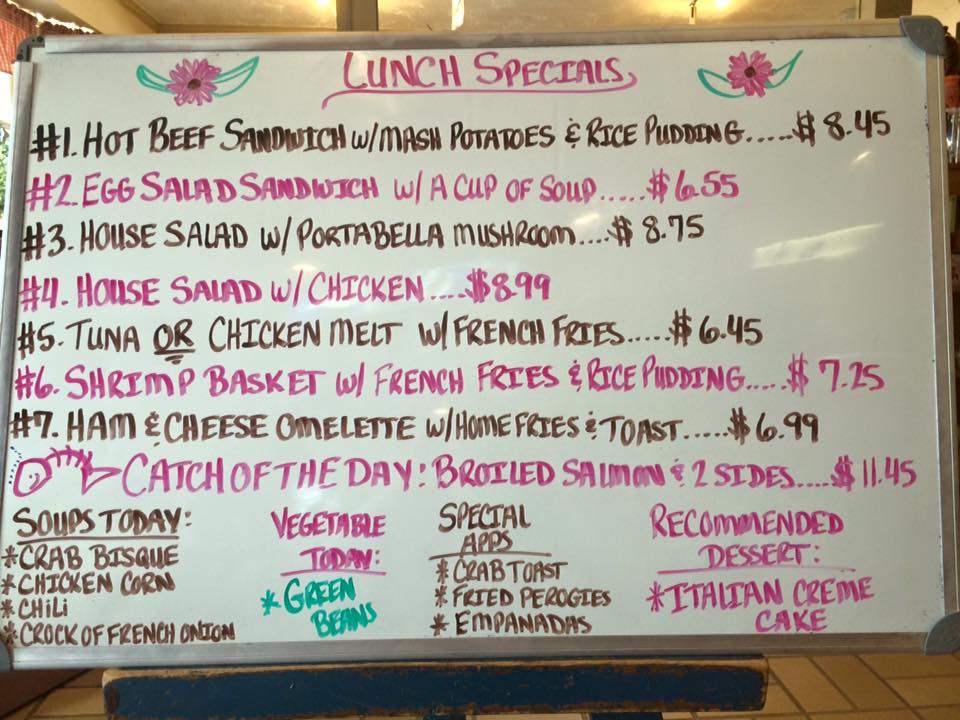 LUNCH SPECIALS
#1. HOT BEEF SANDWICH w/MASH POTATOES & RICE PUDDING.....$ 8.45
#2. EGG SALAD SANDWICH w/ A CUP OF SOUP.....$6.55
#3. HOUSE SALAD w/ PORTABELLA MUSHROOM....$ 8.75
#4. HOUSE SALAD w/ CHICKEN....$8.99
#5. TUNA OR CHICKEN MELT w/FRENCH FRIES.....$ 6.45
#6. SHRIMP BASKET w/ FRENCH FRIES & RICE PUDDING.....$ 7.25
#7. HAM & CHEESE OMELETTE w/HOME FRIES & TOAST.....$6.99
CATCH OF THE DAY: BROILED SALMON & 2 SIDES....$ 11.45
SOUPS TODAY:
*CRAB BISQUE
*CHICKEN CORN
*CHILI
*CROCK OF FRENCH ONION
VEGETABLE
TODAY:
*GREEN
BEANS
SPECIAL
APPS
*CRAB TOAST
*FRIED PEROGIES
*EMPANADAS
RECOMMENDED
DESSERT:
*ITALIAN CREME
CAKE